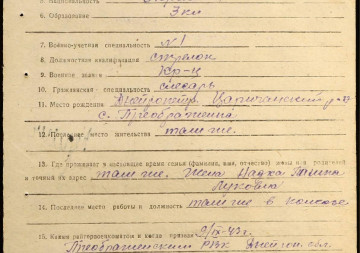 6. Образование 3 кл
7. Военно-учетная специальность №1
8. Должностная квалификация стрелок
9. Военное звание Кр-ц
10. Гражданская специальность слесарь
11. Место рождения Днепропетр. Царичанский р-н
с. Преображенна
12. Последнее место жительства там же.
13. Где проживает в настоящее время семья (фамилия, имя, отчество) жены или родителей
и точный их адрес там же. Жена
Луковна
14. Последнее место работы и должность там же в колхозе
15. Каким райгорвоенкоматом и когда призван 43 г.
Преображенским РВК Днепроп. обл.